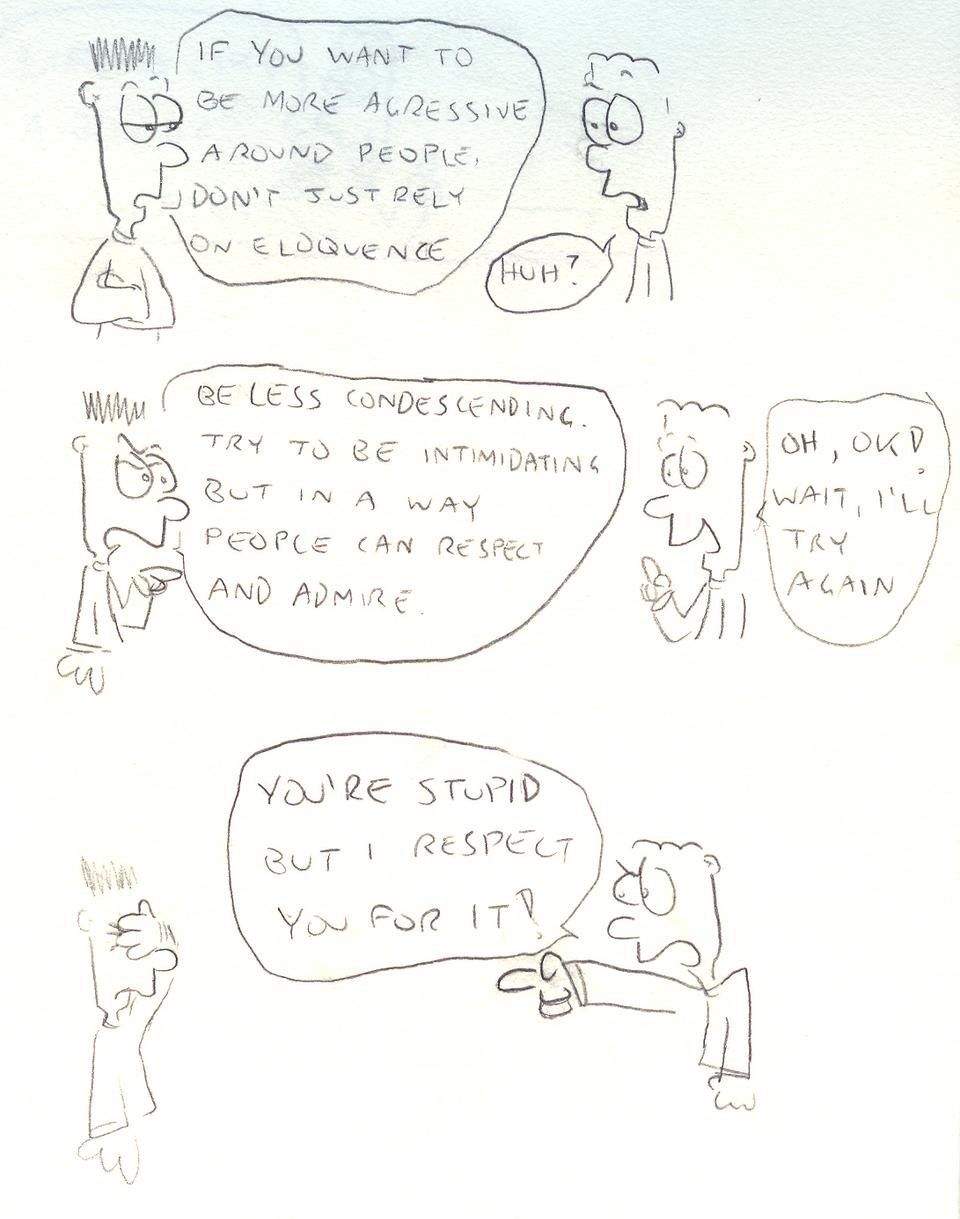 IF YOU WANT TO
BE MORE AGRESSIVE
AROUND PEOPLE,
DON'T JUST RELY
ON ELOQUENCE
HUH?
BE LESS CONDESCENDING.
TRY TO BE INTIMIDATING
BUT IN A WAY
PEOPLE CAN RESPECT
AND ADMIRE.
OH, OK!
WAIT, I'LL
TRY
AGAIN
YOU'RE STUPID
BUT I RESPECT
YOU FOR IT!